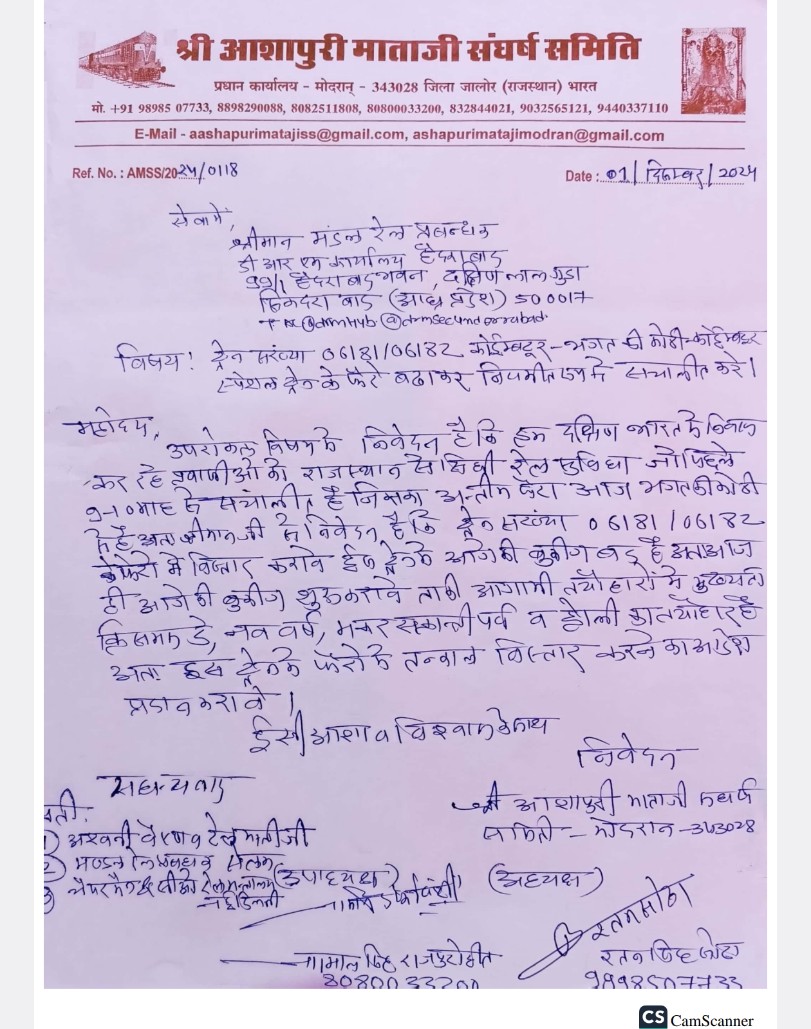 श्री आशापुरी माताजी संघर्ष समिति
प्रधान कार्यालय - मोदरान् - 343028 जिला जालोर (राजस्थान) भारत
मो. +91 98985 07733, 8898290088, 8082511808, 80800033200, 832844021, 9032565121, 9440337110
E-Mail - aashapurimatajiss@gmail.com, ashapurimatajimodran@gmail.com
Ref. No. : AMSS/2024/0118
Date : 01/दिसम्बर/2024
सेवामें,
श्रीमान मंडल रेल प्रबन्धक
डी आर एम कार्यालय हैदराबाद
हैदराबाद भवन, दक्षिण लालागुडा
सिकंदराबाद (आंध्र प्रदेश) 500017
विषय: ट्रेन संख्या 06181/06182 कोईम्बटूर-भगत की कोठी-कोईम्बटूर
स्पेशल ट्रेन के फेरे बढाकर नियमीत रूप से संचालीत करे।
महोदय,
उपरोक्त विषय के निवेदन है कि हम दक्षिण भारत के निवास
कर रहे प्रवासीओ को राजस्थान से सिधी रेल सुविधा जो पिछले
9-10 माह से संचालीत है जिसका अन्तीम फेरा आज भगत की कोठी
से है अतः श्रीमान जी से निवेदन है कि ट्रेन संख्या 06181/06182
के फेरो में विस्तार करावे ईस ट्रेन के आगे की बुकींग बंद है अतः आज
ही आगे की बुकींग शुरू करावे ताकी आगामी त्यौहारों में मुख्यतः
क्रिसमस डे, नव वर्ष, मकर सक्रान्ती पर्व व होली का त्यौहार है
अतः इस ट्रेन के फेरो के तत्काल विस्तार करने का आदेश
प्रदान करावे।
ईसी आशा व विश्वास के साथ
निवेदन
सधन्यवाद
श्री आशापुरी माताजी संघर्ष
समिति - मोदरान - 343028
1) अश्वनी वैष्णव रेल मंत्रीजी
2) मण्डल रेल प्रबन्धक सेलम
3) चेयरमैन & सीईओ रेल मंत्रालय
नई दिल्ली
(उपाध्यक्ष)
(अध्यक्ष)
सिंह राजपुरोहीत
8080033200
रतन सिंह
9898507733
CS CamScanner